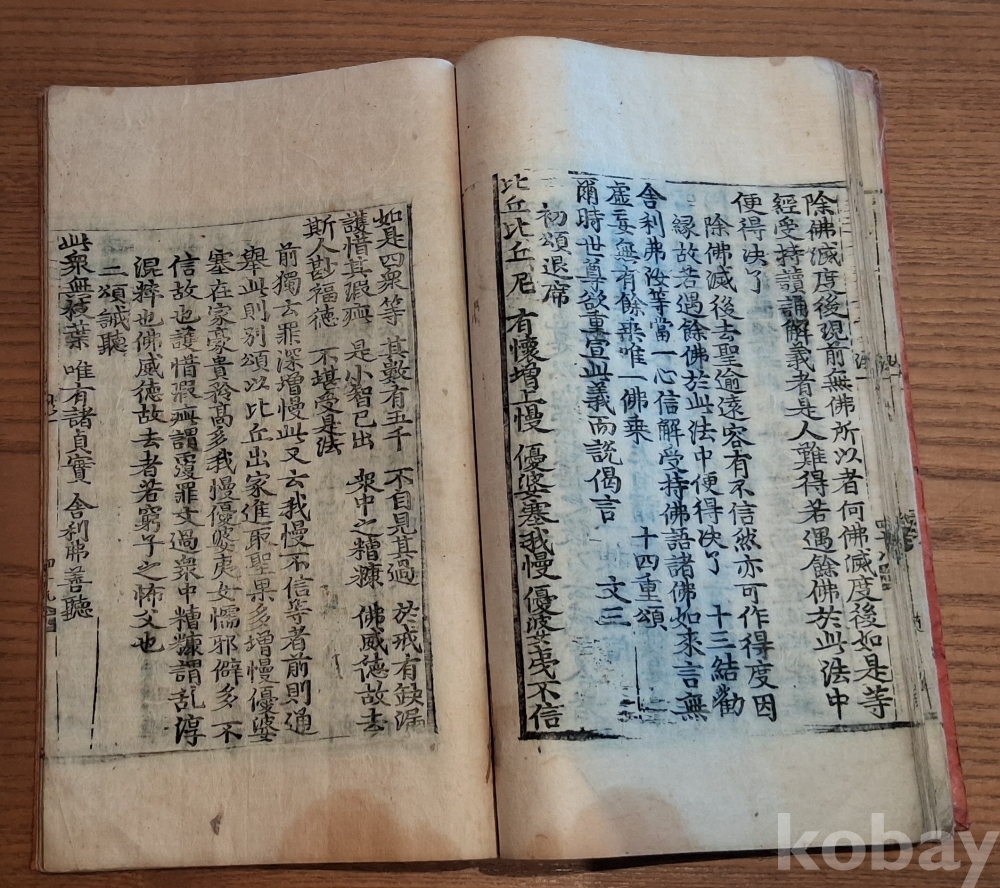 除佛滅度後現前無佛所以者何佛滅度後如是等
經受持讀誦解義者是人難得若遇餘佛於此法中
便得決了
除佛滅後去聖逾遠容有不信然亦可作得度因
緣故若遇餘佛於此法中便得決了 十三結勸
舍利弗汝等當一心信解受持佛語諸佛如來言無
虛妄無有餘乘唯一佛乘 十四重頌
爾時世尊欲重宣此義而說偈言 文三
初頌退席
比丘比丘尼 有懷增上慢 優婆塞我慢 優婆夷不信
如是四衆等 其數有五千 不自見其過 於戒有缺漏
護惜其瑕疵 是小智已出 衆中之糟糠 佛威德故去
斯人尠福德 不堪受是法
前獨去罪深增慢此又云我慢不信等者前則通
舉此則別頌以比丘出家進取聖果多增慢優婆
塞在家豪貴矜高多我慢優婆夷女懦邪僻多不
信故也護惜瑕疵謂覆罪文過衆中糟糠謂乱淳
混粹也佛威德故去者若窮子之怖父也
二頌誡聽
此衆無枝葉 唯有諸貞實 舍利弗善聽
kobay